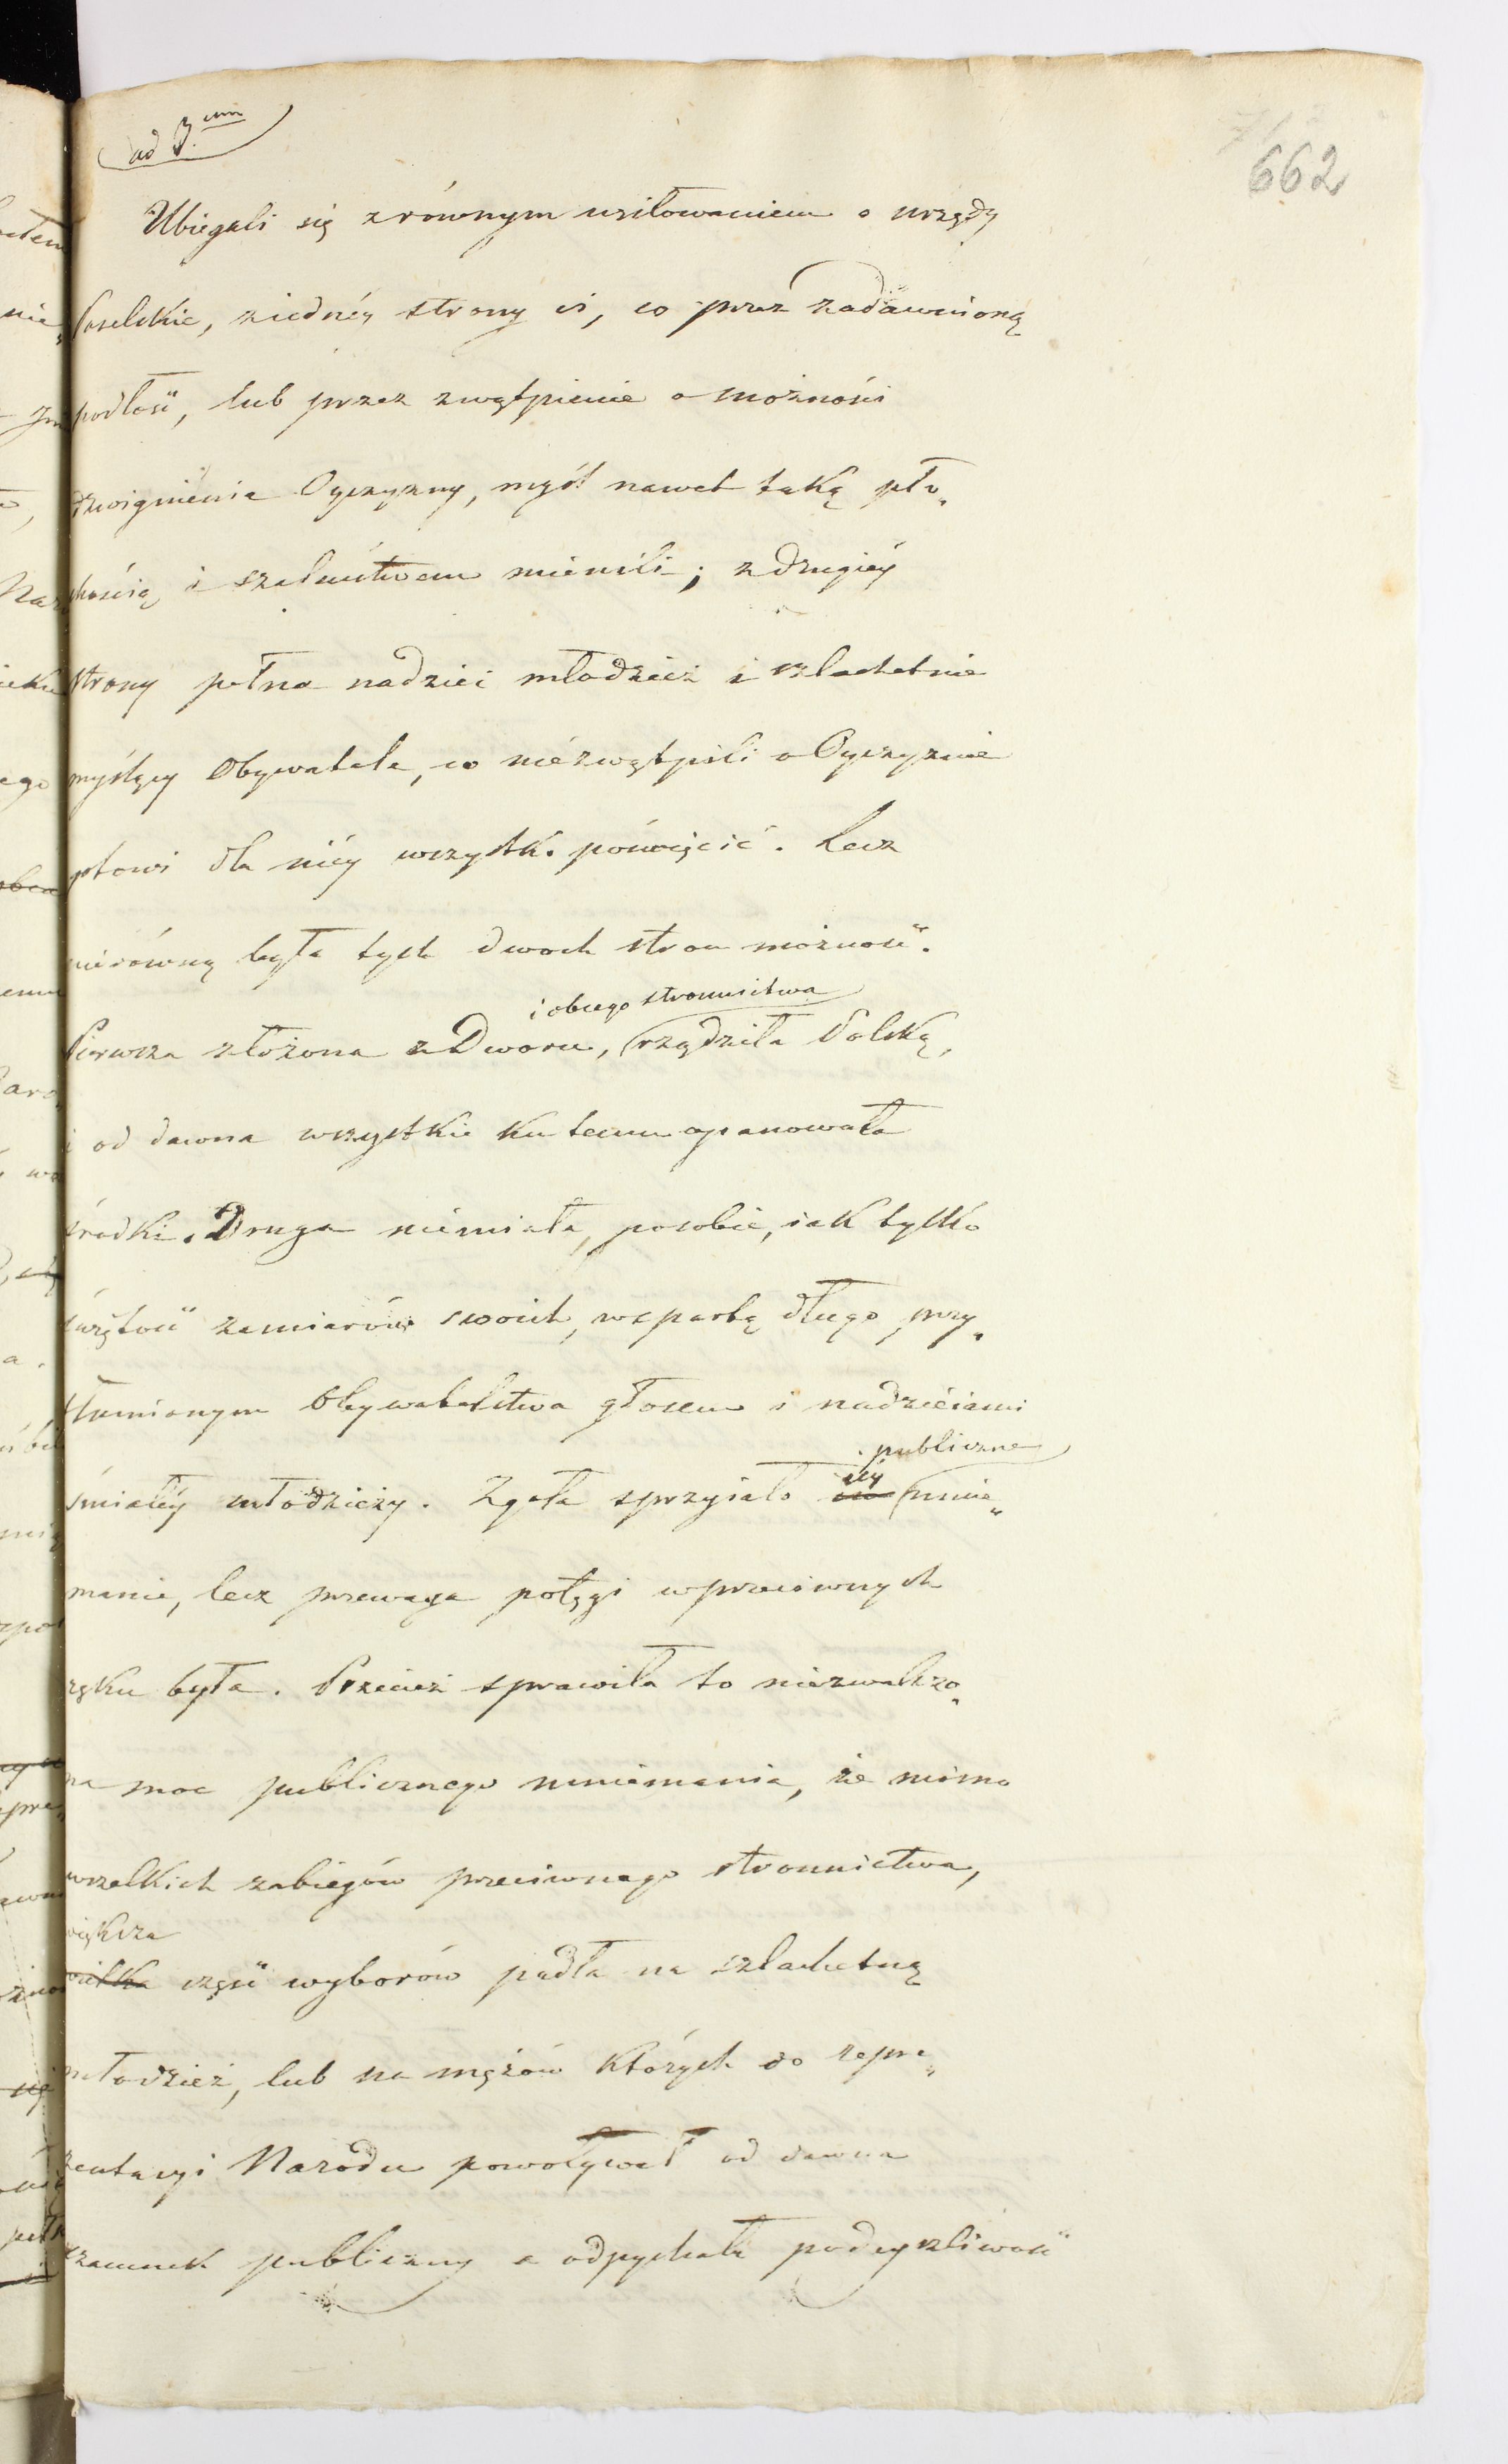 ad 3.um
662
Ubiegali się z równym usiłowaniem o urzędy
Poselskie, z iednéy strony ci, co przez zadawnioną
podłość, lub przez zwątpienie o możności
dzwignienia Oyczyzny, myśl nawet taką pło„
chością i szaleństwem mienili; z drugiéy
strony pełna nadziei młodzież i szlachetnie
myślący Obywatele, co niezwątpili o Oyczyznie
gotowi dla niéy wszystko poświęcić. Lecz
nierówną była tych dwoch stron możność.
i obcego stronnictwa
Pierwsza złożona z Dworu, rządziła Polską,
i od dawna wszystkie ku temu opanowała
środki. Druga niemiała, po sobie, iak tylko
świętość zamiarów swoich, wspartą długo przy„
tłumionym Obywatelstwa głosem i nadzieiami
publiczne
śmiałéy młodzieży. Zgoła sprzyiało iéy mnie„
manie, lecz przewaga potęgi w przeciwnych
ręku była. Przecież sprawiła to niezwalczo„
na moc publicznego mniemania, że mimo
wszelkich zabiegów przeciwnego stronnictwa,
większa
wielka część wyborów padła na szlachetną
młodzież, lub na mężów których do repre„
zentacyi Narodu powoływał od dawna
szacunek publiczny a odpychała podeyrzliwość